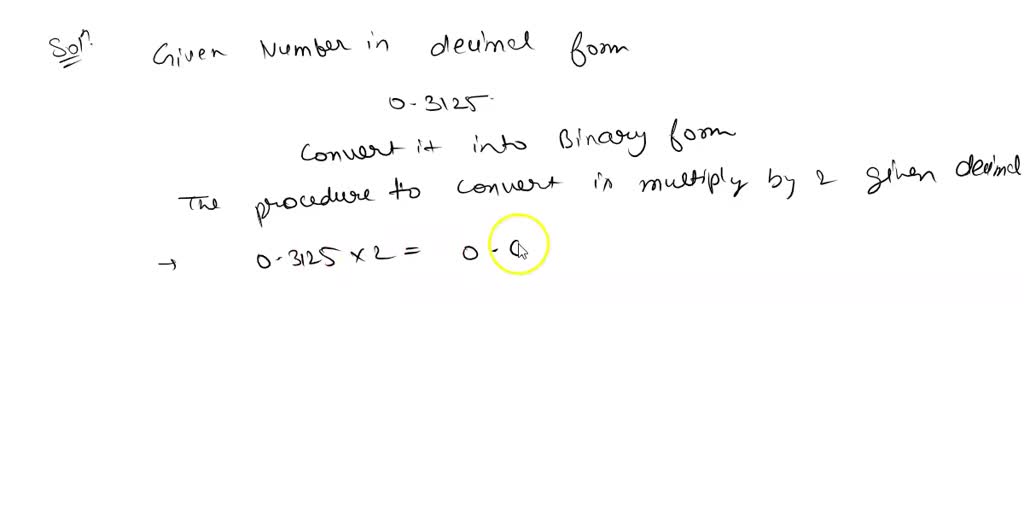 Soln. Given Number in decimal form
0.3125.
Convert it into Binary form
The procedure to convert is multiply by 2 given decimal
→ 0.3125 × 2 = 0.